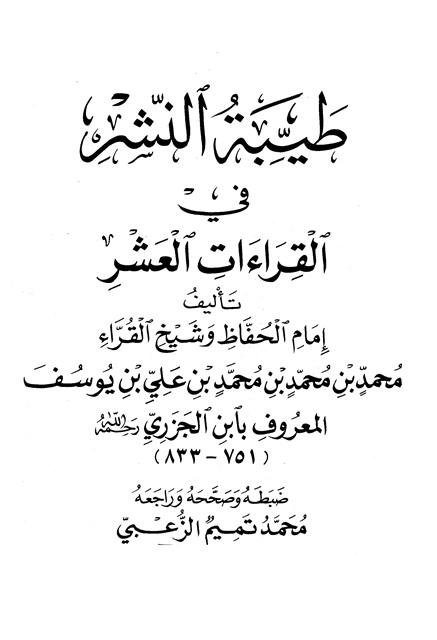 طَيِّبَةُ ٱلنَّشْرِ
فِي
ٱلْقِرَاءَاتِ ٱلْعَشْرِ
تَأْلِيفُ
إِمَامِ ٱلْحُفَّاظِ وَشَيْخِ ٱلْقُرَّاءِ
مُحَمَّدِ بْنِ مُحَمَّدِ بْنِ مُحَمَّدِ بْنِ عَلِيِّ بْنِ يُوسُفَ
ٱلمَعْرُوفِ بِٱبْنِ ٱلْجَزَرِيِّ رَحِمَهُ اللَّهُ
(٧٥١ - ٨٣٣)
ضَبَطَهُ وَصَحَّحَهُ وَرَاجَعَهُ
مُحَمَّد تَمِيم الزُّعْبِيّ